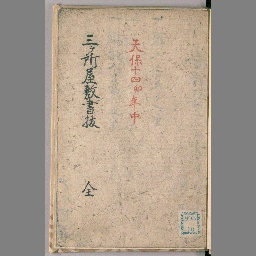 天保十四卯年中
三ケ所屋敷書抜 全